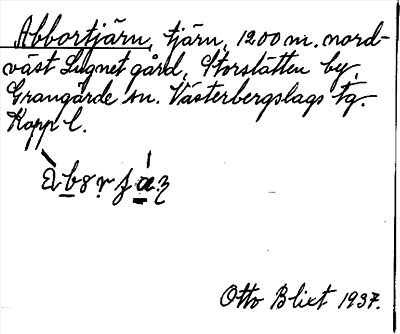 Abbortjärn, tjärn, 1200 m. nord-
väst Lugnet gård, Storslätten by,
Grangärde sn. Västerbergslags tg.
Kopp l.
Otto Blixt 1937.